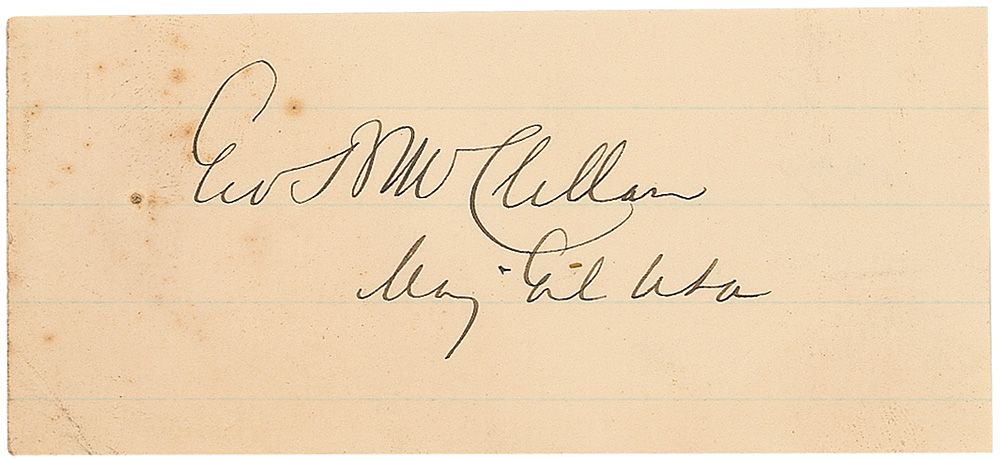 Geo B McClellan
Maj Genl USA